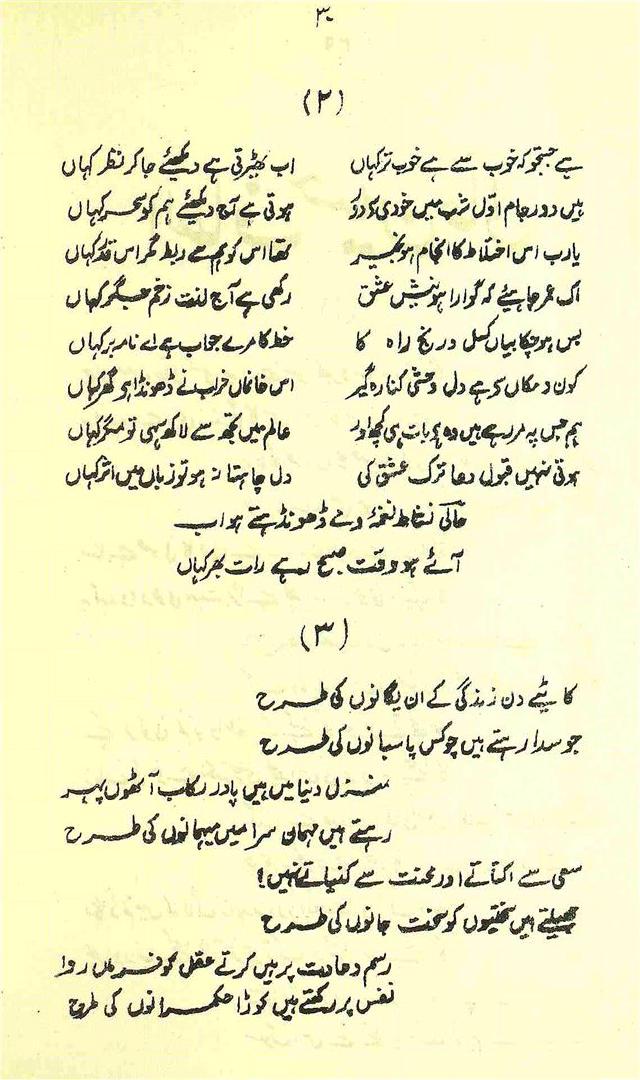 ۳
(۲)
ہے جستجو کہ خوب سے ہے خوب تر کہاں اب ٹھیرتی ہے دیکھئے جا کر نظر کہاں
ہیں دور جام اوّل شب میں خودی کے دور ہوتی ہے آج دیکھئے ہم کو سحر کہاں
یارب اس اختلاط کا انجام ہو بخیر تھا اس کو ہم سے ربط مگر اس قدر کہاں
اک عمر چاہیئے کہ گوارا ہو نیش عشق رکھی ہے آج لذت زخم جگر کہاں
بس ہو چکا بیاں کسل و رنج راہ کا خط کا مرے جواب ہے اے نامہ بر کہاں
کون و مکاں سے ہے دل وحشی کنارہ گیر اس خانماں خراب نے ڈھونڈا ہے گھر کہاں
ہم جس پہ مر رہے ہیں وہ ہے بات ہی کچھ اور عالم میں تجھ سے لاکھ سہی تو مگر کہاں
ہوتی نہیں قبول دعا ترک عشق کی دل چاہتا نہ ہو تو زباں میں اثر کہاں
حالی نشاط نغمۂ و مے ڈھونڈتے ہو اب
آئے ہو وقت صبح رہے رات بھر کہاں
(۳)
کاٹیے دن زندگی کے ان یگانوں کی طرح
جو سدا رہتے ہیں چوکس پاسبانوں کی طرح
منزل دنیا میں ہیں پادر رکاب آٹھوں پہر
رہتے ہیں مہمان سرا میں میہمانوں کی طرح
سعی سے اکتاتے اور محنت سے کنیاتے نہیں!
جھیلتے ہیں سختیوں کو سخت جانوں کی طرح
رسم و عادت پر ہیں کرتے عقل کو فرماں روا
نفس پر رکھتے ہیں کوڑا حکمرانوں کی طرح